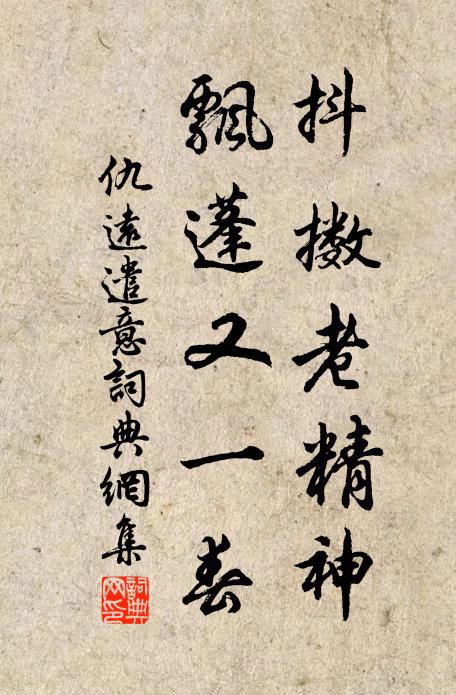 抖擻老精神
飄蓬又一春
仇遠遣意詞典網集
詞典網印